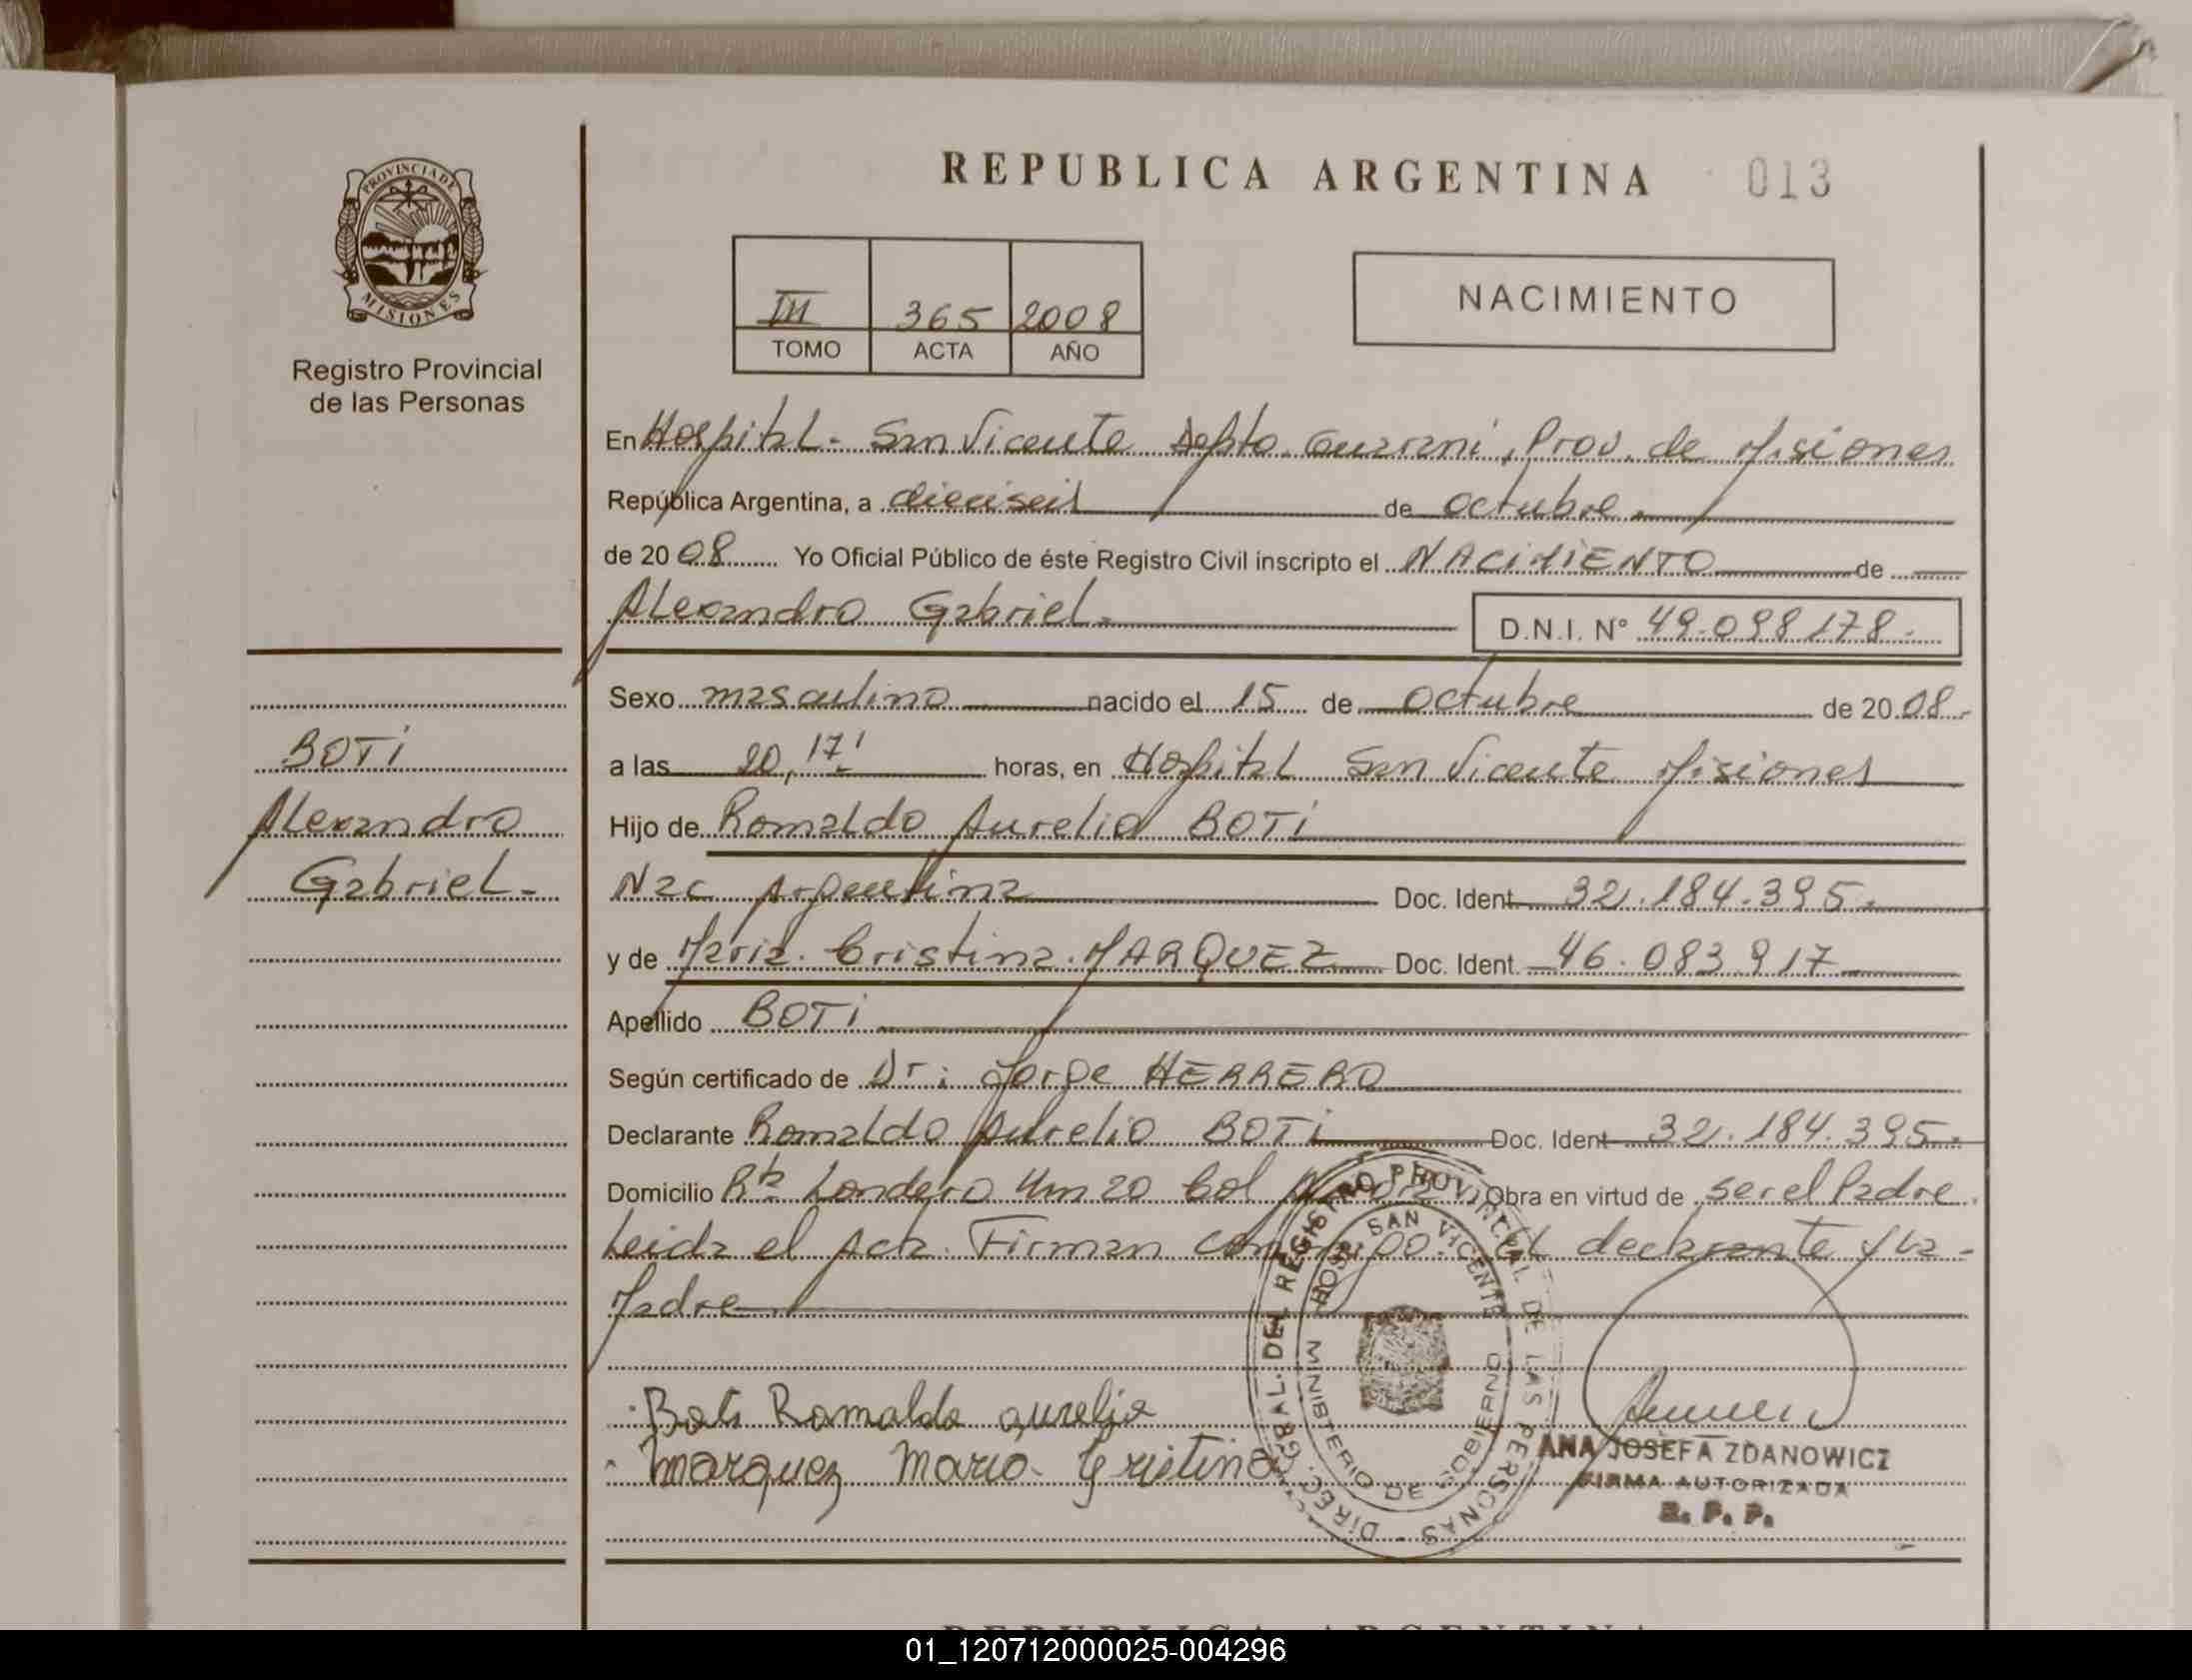 REPUBLICA ARGENTINA 013
PROVINCIA DE
MISIONES
Registro Provincial
de las Personas
III 365 2008
TOMO ACTA AÑO
NACIMIENTO
En Hospital - San Vicente Depto. Guarani, Prov. de Misiones
República Argentina, a dieciseis de octubre.
de 2008 Yo Oficial Público de éste Registro Civil inscripto el NACIMIENTO de
Alexandro Gabriel.
D.N.I. Nº 49.098.178.
Sexo masculino nacido el 15 de Octubre de 2008.
BOTi
Alexandro
Gabriel.
a las 20,17' horas, en Hospital San Vicente Misiones
Hijo de Romaldo Aurelio BOTi
Nac Argentina Doc. Ident. 32.184.395.
y de Maria Cristina MARQUEZ Doc. Ident. 46.083.917
Apellido BOTi
Según certificado de Dr: Jorge HERRERO
Declarante Romaldo Aurelio BOTi Doc. Ident 32.184.395.
Domicilio Rta Londero Km 20 Col Obra en virtud de ser el Padre.
Leida el Acta. Firman declarante y la
Madre
Boti Romaldo aurelio
Marquez Maria Cristina
DIREC. GRAL. DEL REGISTRO PROVINCIAL DE LAS PERSONAS
HOSP. SAN VICENTE
MINISTERIO DE GOBIERNO
ANA JOSEFA ZDANOWICZ
FIRMA AUTORIZADA
R. P. P.
REPUBLICA ARGENTINA
01_120712000025-004296